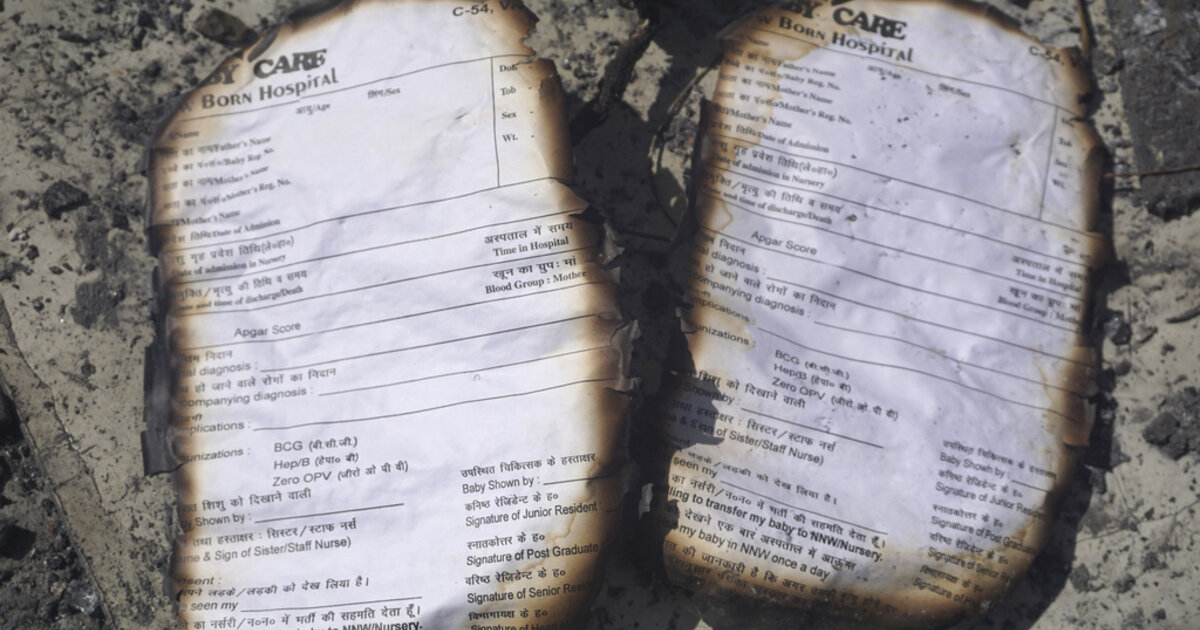 C-54,
BY CARE
BORN HOSPITAL
आयु/Age
लिंग/Sex
DoB
Tob
Sex
Wt.
Name
का नाम/Father's Name
का पं०सं०/Baby Reg. No.
का नाम/Mother's Name
का पं०सं०/Mother's Reg. No.
Mother's Name
तिथि/Date of Admission
गृह प्रवेश तिथि(ले०हा०)
Date of admission in Nursery
मृत्यु की तिथि व समय
and time of discharge/Death
अस्पताल में समय
Time in Hospital
खून का ग्रुप: मां
Blood Group : Mother
Apgar Score
निदान
diagnosis :
हो जाने वाले रोगों का निदान
companying diagnosis :
plications :
unizations :
BCG (बी.सी.जी.)
Hep/B (हेपा० बी)
Zero OPV (जीरो ओ पी बी)
शिशु को दिखाने वाली
Shown by :
तथा हस्ताक्षर : सिस्टर/स्टाफ नर्स
& Sign of Sister/Staff Nurse)
उपस्थित चिकित्सक के हस्ताक्षर
Baby Shown by :
कनिष्ठ रेजिडेन्ट के ह०
Signature of Junior Resident
स्नातकोत्तर के ह०
Signature of Post Graduate
वरिष्ठ रेजिडेन्ट के ह०
Signature of Senior
विभागाध्यक्ष के ह०
Signature of
लड़के/लड़की को देख लिया है।
seen my
का नर्सरी/न०न० में भर्ती की सहमति देता हूँ।
NNW/Nursery.
BY CARE
BORN HOSPITAL
C-54,
Name
Father's Name
का पं०सं०/Baby Reg. No.
का नाम/Mother's Name
का पं०सं०/Mother's Reg. No.
Mother's Name
तिथि/Date of Admission
आयु/Age
लिंग/Sex
Tob
Sex
Wt.
शिशु गृह प्रवेश तिथि(ले०हा०)
Date of admission in Nursery
मृत्यु की तिथि व समय
and time of discharge/Death
अस्पताल में समय
Time in Hospital
खून का ग्रुप: मां
Blood Group : Mothe
Apgar Score
निदान
diagnosis :
हो जाने वाले रोगों का निदान
companying diagnosis :
plications :
unizations :
BCG (बी.सी.जी.)
Hep/B (हेपा० बी)
Zero OPV (जीरो ओ पी बी)
शिशु को दिखाने वाली
Shown by :
तथा हस्ताक्षर : सिस्टर/स्टाफ नर्स
& Sign of Sister/Staff Nurse)
उपस्थित चिकित्सक के हस्ताक्षर
Baby Shown by :
कनिष्ठ रेजिडेन्ट के ह०
Signature of Junior Resid
स्नातकोत्तर के ह०
Signature of Post Gradua
वरिष्ठ रेजिडेन्ट के ह०
Signature of Senior
विभागाध्यक्ष के ह०
Signature of
लड़के/लड़की को देख लिया है।
seen my
का नर्सरी/न०न० में भर्ती की सहमति देता हूँ।
ling to transfer my baby to NNW/Nursery.
देखने एक बार अस्पताल में आऊंगा
my baby in NNW once a day
की जानकारी है कि अगर